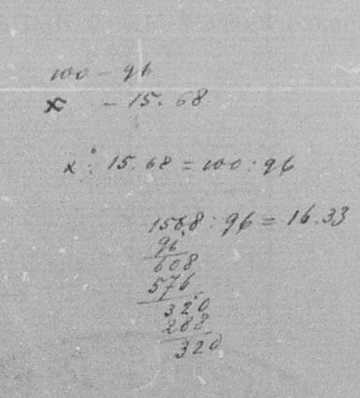 100 - 96
x - 15.68
x : 15.68 = 100 : 96
1568 : 96 = 16.33
96
608
576
320
288
320